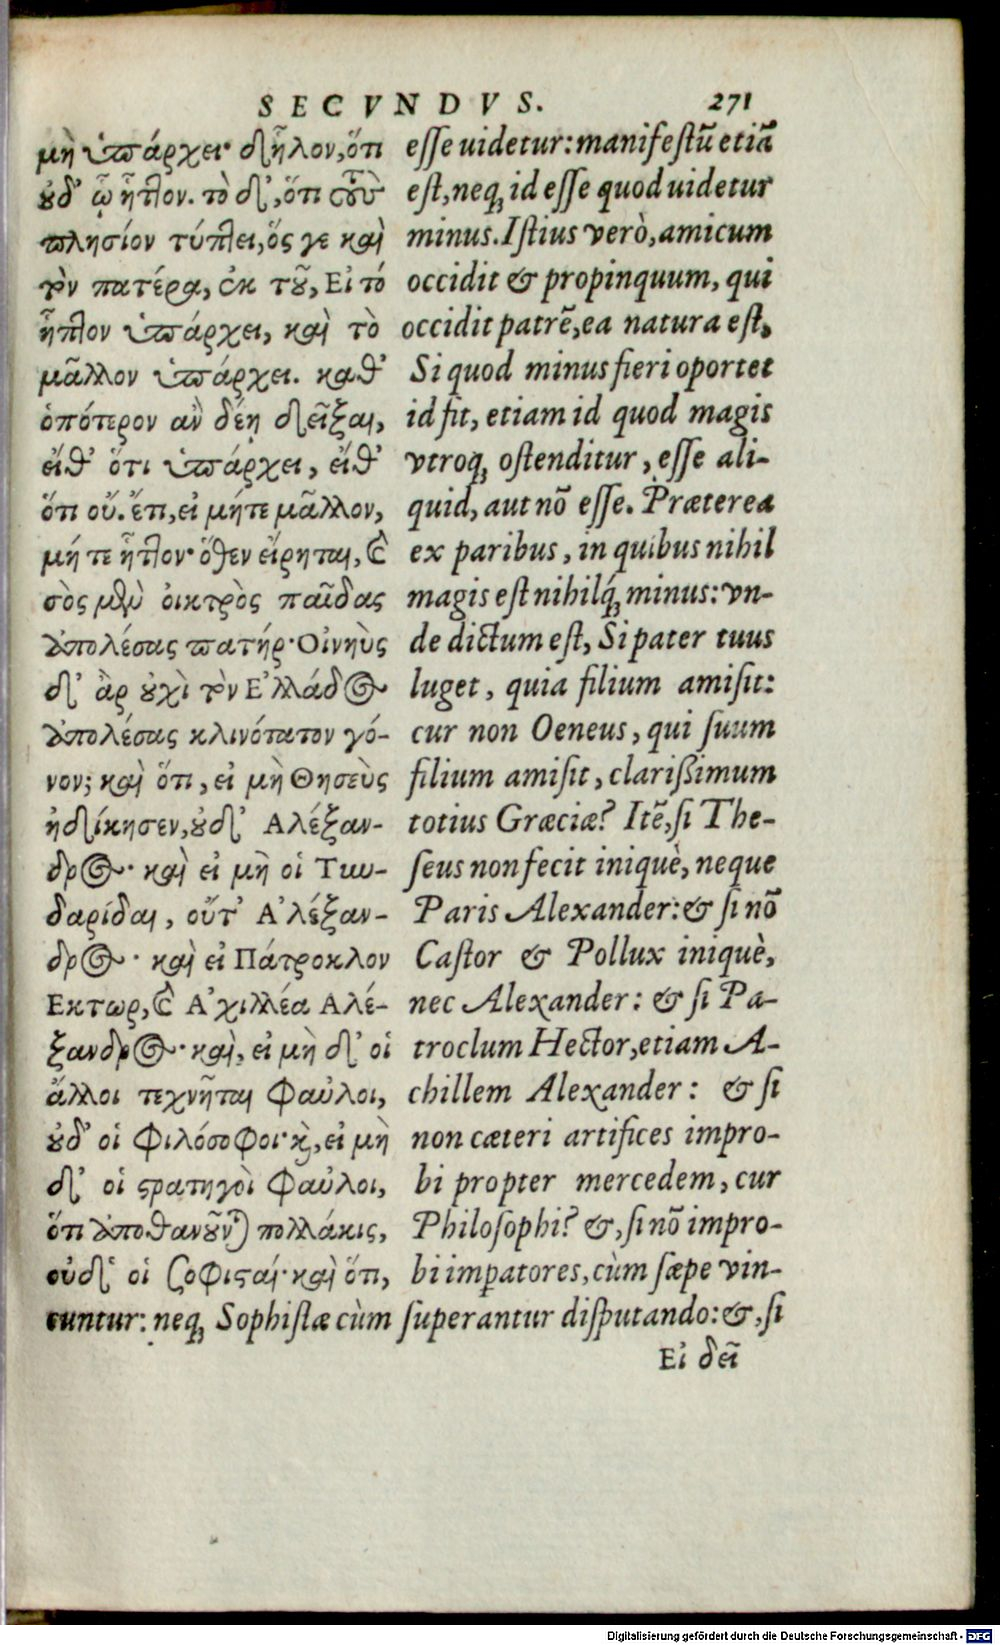 SECVNDVS. 271
μὴ ὑπάρχει· δῆλον, ὅτι
οὐδ' ᾧ ἧττον. τὸ δ', ὅτι τοὺς
πλησίον τύπτει, ὅς γε καὶ
τὸν πατέρα, ἐκ τοῦ, Εἰ τό
ἧττον ὑπάρχει, καὶ τὸ
μᾶλλον ὑπάρχει. καθ'
ὁπότερον ἂν δέῃ δεῖξαι,
εἴθ' ὅτι ὑπάρχει, εἴθ'
ὅτι οὔ. ἔτι, εἰ μήτε μᾶλλον,
μή τε ἧττον· ὅθεν εἴρηται, Καὶ
σὸς μὲν οἰκτρὸς παῖδας
ἀπολέσας πατήρ· Οἰνηὺς
δ' ἂρ οὐχὶ τὸν Ἑλλάδος
ἀπολέσας κλινότατον γό-
νον; καὶ ὅτι, εἰ μὴ Θησεὺς
ἠδίκησεν, οὐδ' Αλέξαν-
δρος· καὶ εἰ μὴ οἱ Τυν-
δαρίδαι, οὔτ' Ἀλέξαν-
δρος· καὶ εἰ Πάτροκλον
Εκτωρ, καὶ Ἀχιλλέα Αλέ-
ξανδρος· καὶ, εἰ μὴ δ' οἱ
ἄλλοι τεχνῖται φαῦλοι,
οὐδ' οἱ φιλόσοφοι· καὶ, εἰ μὴ
δ' οἱ στρατηγοὶ φαῦλοι,
ὅτι ἀποθανοῦνται πολλάκις,
οὐδ' οἱ σοφισταί· καὶ ὅτι,
esse uidetur: manifestũ etiã
est, neq; id esse quod uidetur
minus. Istius verò, amicum
occidit & propinquum, qui
occidit patrẽ, ea natura est,
Si quod minus fieri oportet
id fit, etiam id quod magis
vtroq; ostenditur, esse ali-
quid, aut nõ esse. Præterea
ex paribus, in quibus nihil
magis est nihilq́; minus: vn-
de dictum est, Si pater tuus
luget, quia filium amisit:
cur non Oeneus, qui suum
filium amisit, clarißimum
totius Græciæ? Itẽ, si The-
seus non fecit iniquè, neque
Paris Alexander: & si nõ
Castor & Pollux iniquè,
nec Alexander: & si Pa-
troclum Hector, etiam A-
chillem Alexander: & si
non cæteri artifices impro-
bi propter mercedem, cur
Philosophi? &, si nõ impro-
bi imperatores, cùm sæpe vin-
cuntur: neq; Sophistæ cùm superantur disputando: &, si
Εἰ δεῖ
Digitalisierung gefördert durch die Deutsche Forschungsgemeinschaft - DFG